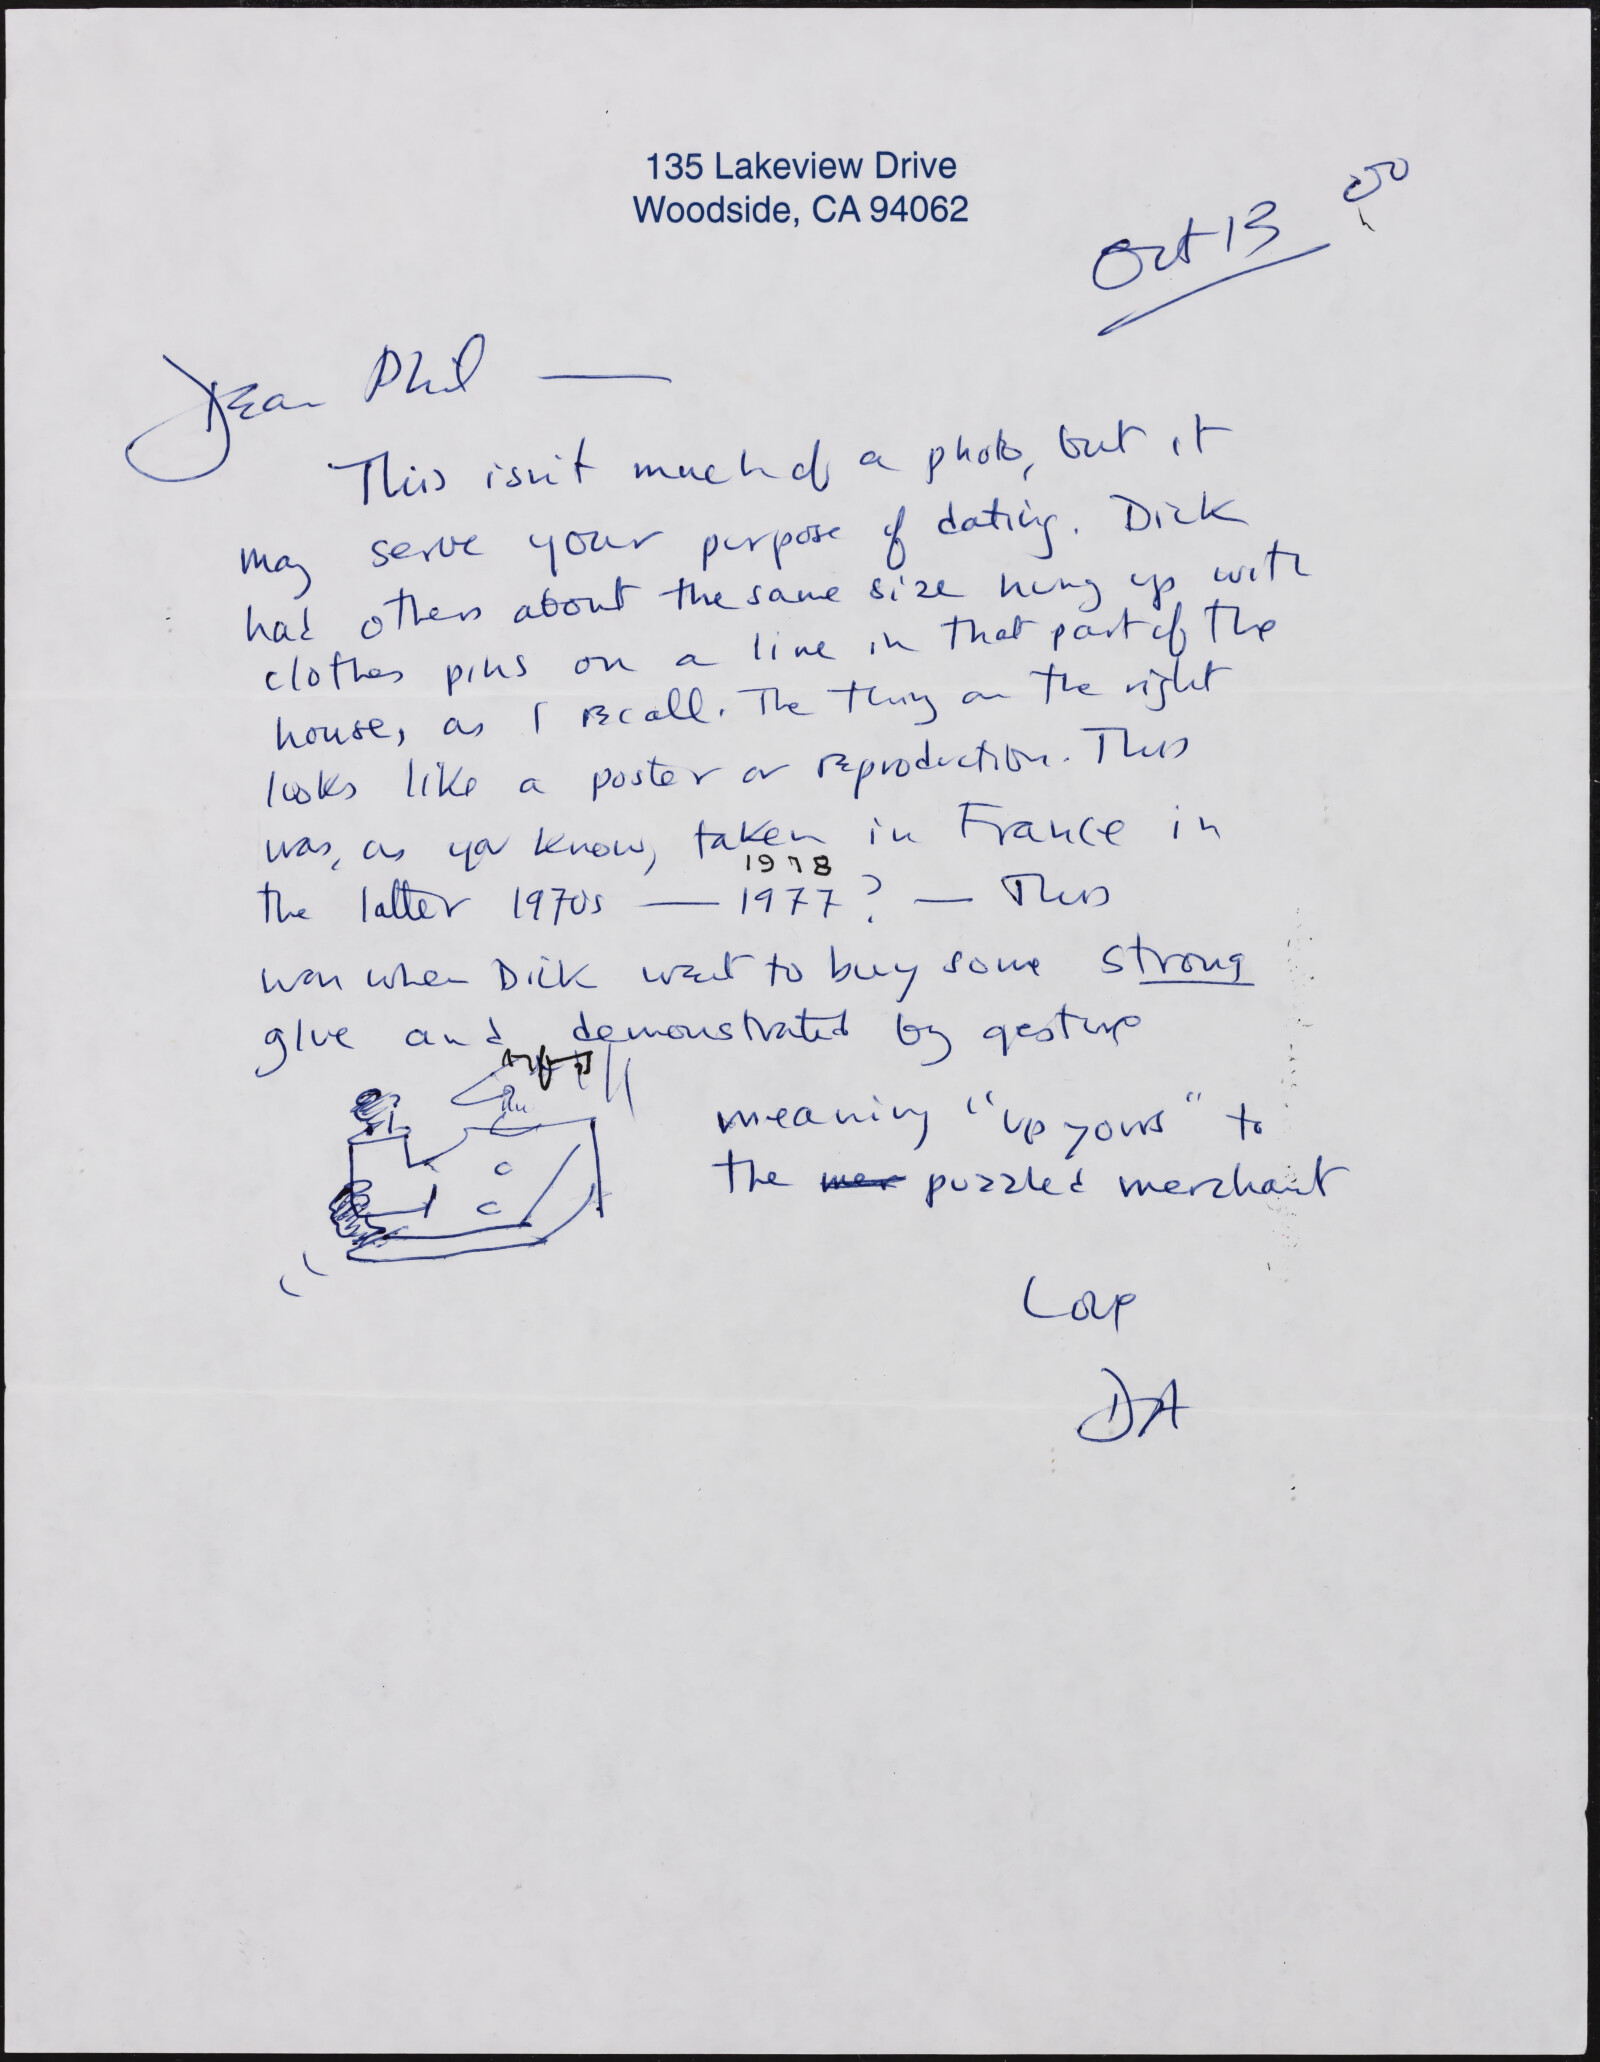 135 Lakeview Drive
Woodside, CA 94062
Oct 13
Dear Phil —
This isn't much of a photo, but it
may serve your purpose of dating. Dick
had others about the same size hung up with
clothes pins on a line in that part of the
house, as I recall. The thing on the right
looks like a poster or reproduction. This
was, as you know, taken in France in
1978
the latter 1970s — 1977? — This
was when Dick went to buy some strong
glue and demonstrated by gesture
meaning "up yours" to
the puzzled merchant
Love
DA